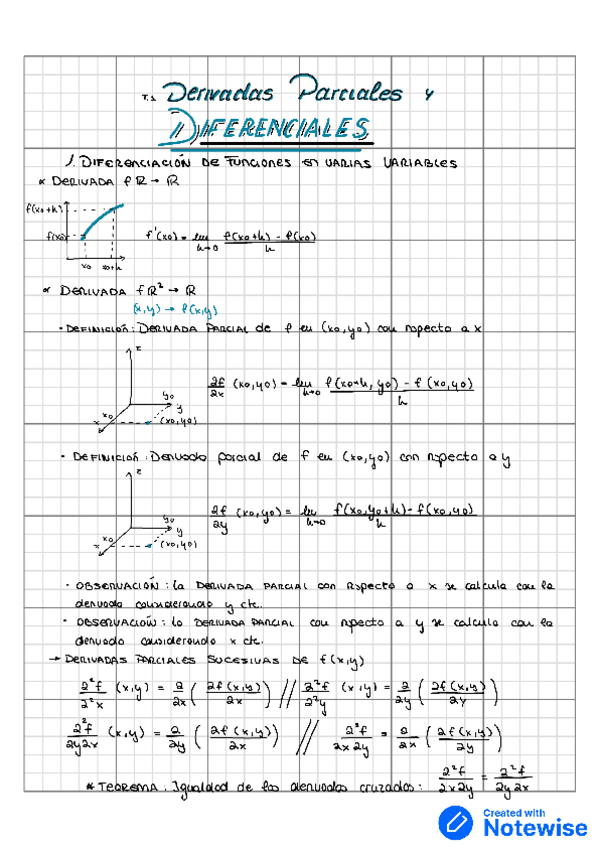 T.1 Derivadas Parciales y
DIFERENCIALES
1. DIFERENCIACIÓN DE FUNCIONES EN VARIAS VARIABLES
* DERIVADA f ℝ → ℝ
f(x0+h)
f(x0)
x0 x0+h
f'(x0) = lim h→0 f(x0+h) - f(x0) / h
* DERIVADA f ℝ² → ℝ
(x,y) → f(x,y)
· DEFINICIÓN: DERIVADA PARCIAL de f en (x0,y0) con respecto a x
z
y0
y
x0
x
(x0,y0)
∂f/∂x (x0,y0) = lim h→0 f(x0+h, y0) - f(x0,y0) / h
· DEFINICIÓN: Derivada parcial de f en (x0,y0) con respecto a y
z
y0
y
x0
x
(x0,y0)
∂f/∂y (x0,y0) = lim h→0 f(x0,y0+h) - f(x0,y0) / h
· OBSERVACIÓN: la DERIVADA PARCIAL con respecto a x se calcula con la
derivada considerando y cte.
· OBSERVACIÓN: la DERIVADA PARCIAL con respecto a y se calcula con la
derivada considerando x cte.
→ DERIVADAS PARCIALES SUCESIVAS DE f(x,y)
∂²f/∂²x (x,y) = ∂/∂x (∂f(x,y)/∂x) // ∂²f/∂²y (x,y) = ∂/∂y (∂f(x,y)/∂y)
∂²f/∂y∂x (x,y) = ∂/∂y (∂f(x,y)/∂x) // ∂²f/∂x∂y = ∂/∂x (∂f(x,y)/∂y)
* TEOREMA: Igualdad de las derivadas cruzadas: ∂²f/∂x∂y = ∂²f/∂y∂x
Created with
Notewise